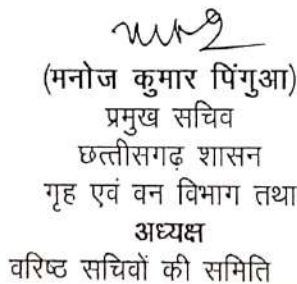 (मनोज कुमार पिंगुआ)
प्रमुख सचिव
छत्तीसगढ़ शासन
गृह एवं वन विभाग तथा
अध्यक्ष
वरिष्ठ सचिवों की समिति